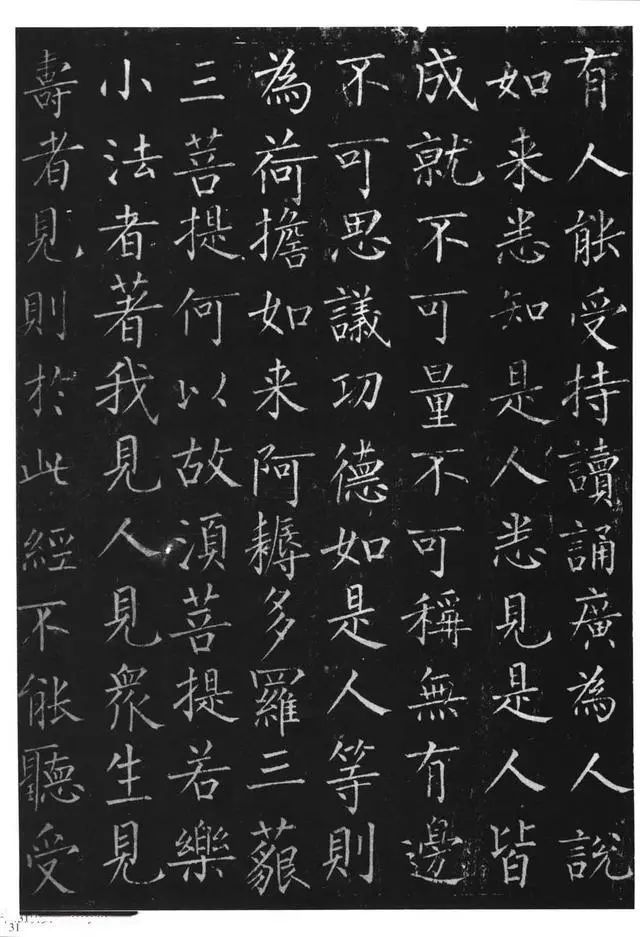 有人能受持讀誦廣為人說
如来悉知是人悉見是人皆
成就不可量不可稱無有邊
不可思議功德如是人等則
為荷擔如来阿耨多羅三藐
三菩提何以故須菩提若樂
小法者著我見人見眾生見
壽者見則於此經不能聽受
31